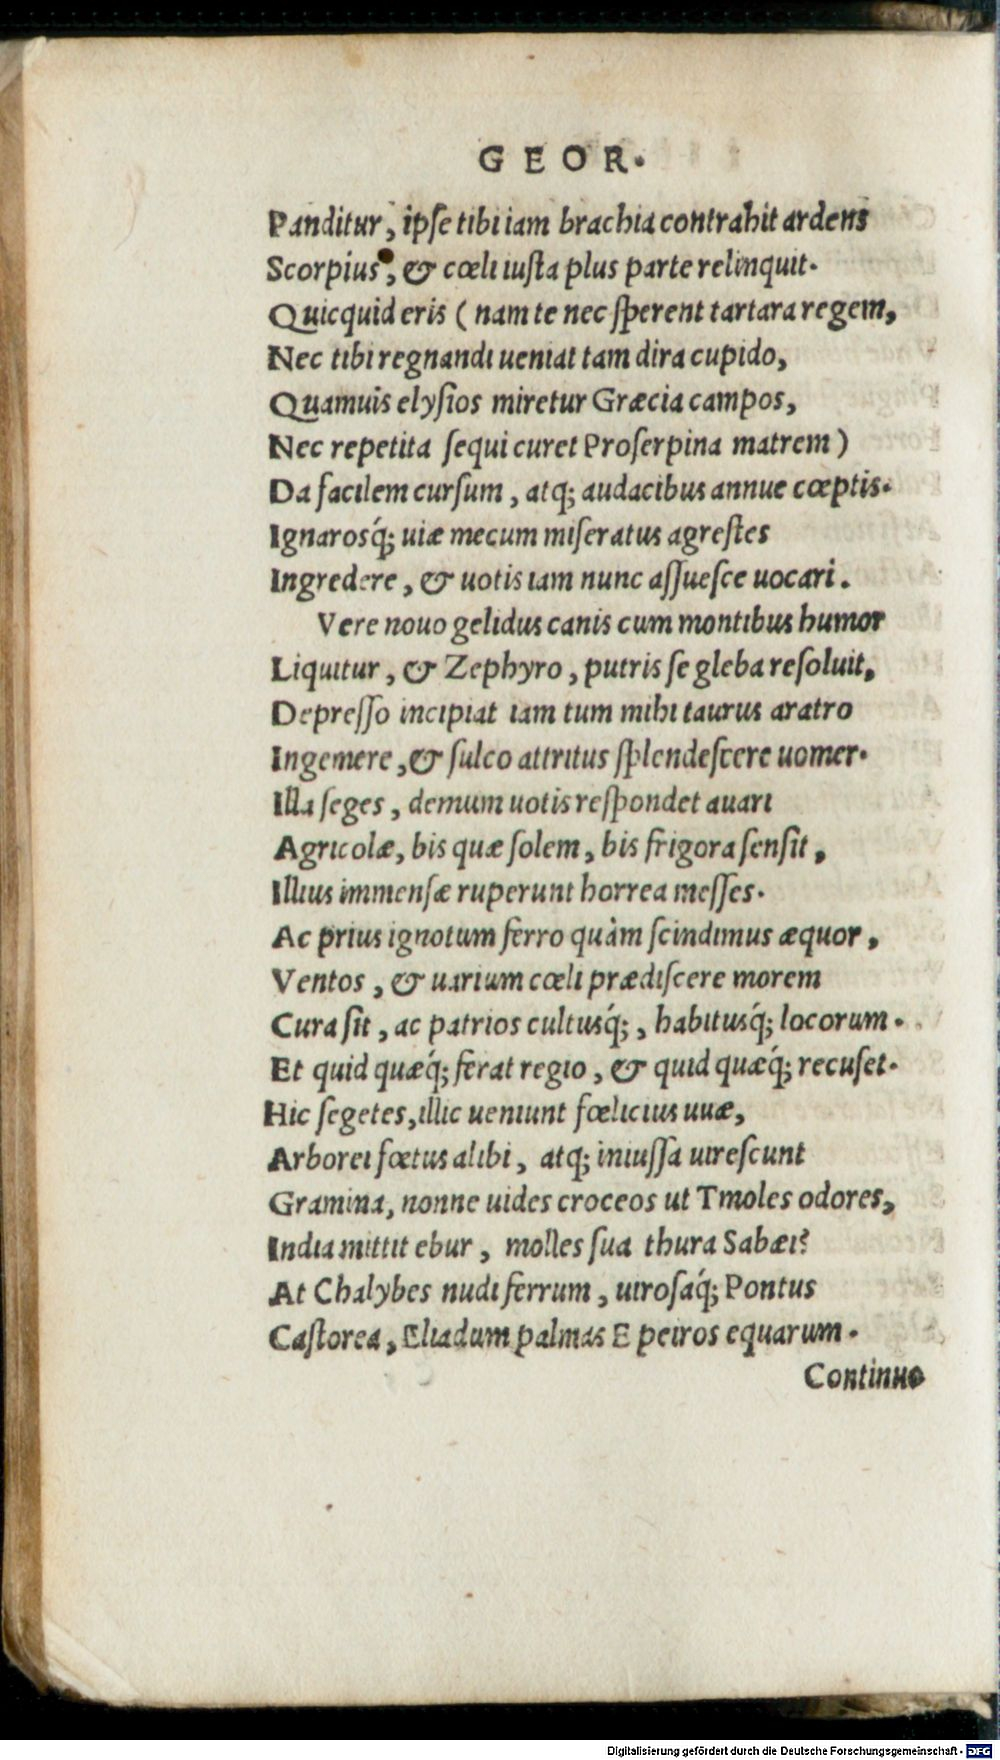 GEOR.
Panditur, ipſe tibi iam brachia contrahit ardens
Scorpius, & cœli iuſta plus parte relinquit.
Quicquid eris ( nam te nec ſperent tartara regem,
Nec tibi regnandi ueniat tam dira cupido,
Quamuis elyſios miretur Græcia campos,
Nec repetita ſequi curet Proſerpina matrem )
Da facilem curſum , atq; audacibus annue cœptis.
Ignarosq́; uiæ mecum miſeratus agreſtes
Ingredere , & uotis iam nunc aſſueſce uocari .
Vere nouo gelidus canis cum montibus humor
Liquitur , & Zephyro , putris ſe gleba reſoluit,
Depreſſo incipiat iam tum mihi taurus aratro
Ingemere ,& ſulco attritus ſplendeſcere uomer.
Illa ſeges , demum uotis reſpondet auari
Agricolæ, bis quæ ſolem , bis frigora ſenſit ,
Illius immenſæ ruperunt horrea meſſes.
Ac prius ignotum ferro quàm ſcindimus æquor ,
Ventos , & uarium cœli prædiſcere morem
Cura ſit , ac patrios cultusq́; , habitusq́; locorum .
Et quid quæq́; ferat regio , & quid quæq́; recuſet.
Hic ſegetes,illic ueniunt fœlicius uuæ,
Arborei fœtus alibi , atq; iniuſſa uireſcunt
Gramina, nonne uides croceos ut Tmoles odores,
India mittit ebur , molles ſua thura Sabæi?
At Chalybes nudi ferrum , uiroſaq́; Pontus
Caſtorea , Eliadum palmas E peiros equarum .
Continuo
Digitalisierung gefördert durch die Deutsche Forschungsgemeinschaft - DFG